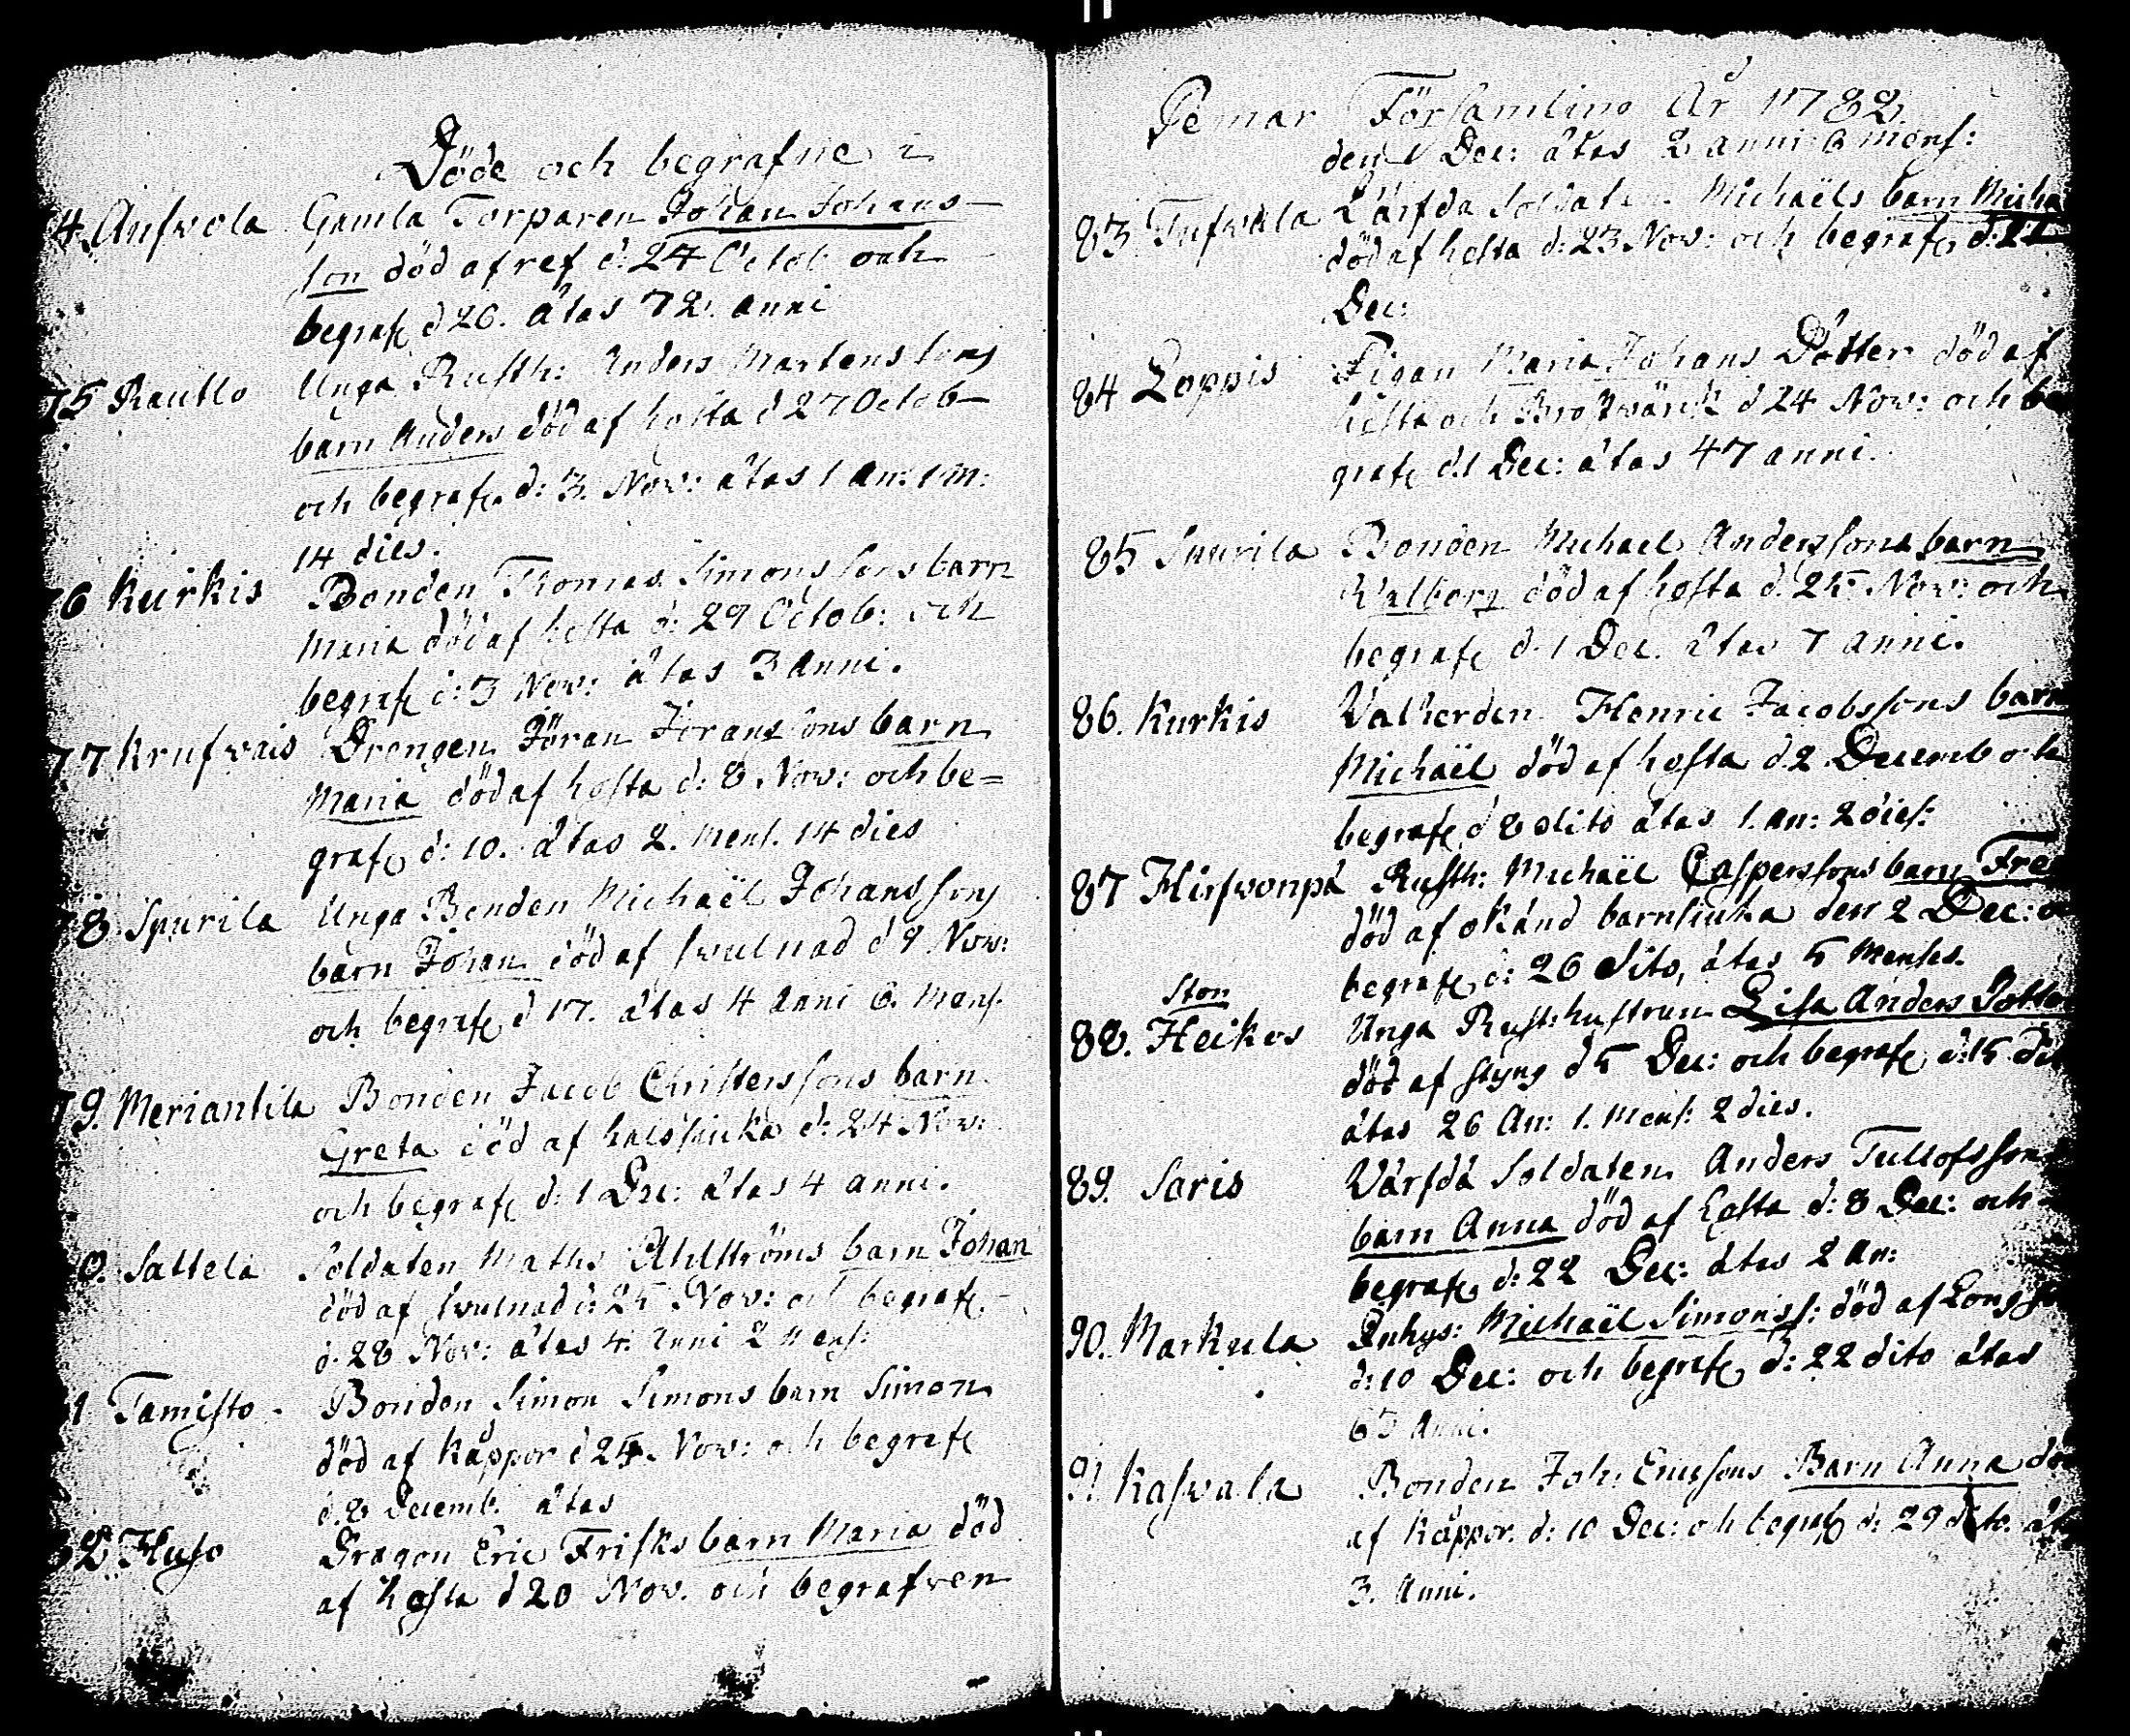 Döde och begrafne i
74. Aufwola Gamla Torparen Johan Johans-
son död af ref d: 24 Octob: och
begrafe d 26. ätas 72. anni
75 Rautlo Unga Rusth: Anders Martenssons
barn Anders död af hosta d 27 Octob
och begrafe d: 3. Nov: ätas 1 an: 1 m:
14 dies.
76 Kurkis Bonden Thomas Simonssons barn
Maria död af hosta d: 29 Octob: och
begrafe d: 3 Nov: ätas 3 anni.
77 Krufvais Drengen Jöran Jöranssons barn
Maria död af hosta d: 8 Nov: och be=
grafe d: 10. ätas 2. mens. 14 dies
78 Spurila Unga Bonden Michaël Johanssons
barn Johan död af swulnad d 9 Nov:
och begrafe d 17. ätas 4 anni 6. mens.
79. Meriantila Bonden Jacob Christerssons barn
Greta död af halssiuka d: 24 Nov:
och begrafe d: 1 Dec: ätas 4 anni.
0. Sattela Soldaten Maths Ahlströms barn Johan
död af swulnad d: 25 Nov: och begrafe
d. 28 Nov: ätas 4. anni 2 mens:
1 Tamisto - Bonden Simon Simons barn Simon
död af Kåppor d 25. Nov: och begrafe
d. 8 Decemb. ätas
82 Huso Dragon Eric Frisks barn Maria död
af hosta d 20 Nov. och begrafven
Pemar Församling År 1782.
den 1 Dec: ätas 2 anni 6 mens:
83 Tufwala Värfda Soldaten Michaëls barn Micha
död af hosta d: 23 Nov: och begrafe d: 21
Dec:
84 Loppis Pigan Maria Johans Dotter död af
hosta och Bröstwärk d 24 Nov: och be
grafe d.1 Dec: ätas 47 anni.
85 Spurila Bonden Michael Anderssons barn
Walborg död af hosta d. 25 Nov: och
begrafe d. 1 Dec. ätas 7 anni.
86. Kurkis Valherden Henric Jacobssons barn
Michaël död af hosta d 2 Decemb och
begrafe d 8 dito ätas 1. an: 2 dies:
87 Hirfvonpä Rusth: Michaël Casperssons barn Fre
död af okänd barnsiuka den 2 Dec: o
begrafe d: 26 dito, ätas 5 Menses.
Ston
88. Heikos Unga Rusth: hustrun Lisa Anders Dotter
död af styng d 5 Dec: och begrafe d: 15 di
ätas 26 An: 1. Mens: 2 dies.
89. Saris Värfda Soldaten Anders Tullofsson
barn Anna död af Hosta d: 8 Dec: och
begrafe d: 22 Dec: ätas 2 An:
90. Markula Inhys: Michaël Simons s: död af Longs
d: 10 Dec: och begrafe d: 22 dito ätas
65 Anni.
91 Kaswala Bonden Joh: Ericssons Barn Anna dö
af Kåppor. d: 10 Dec: och begrafe d: 29 dito. ät
3. Anni.